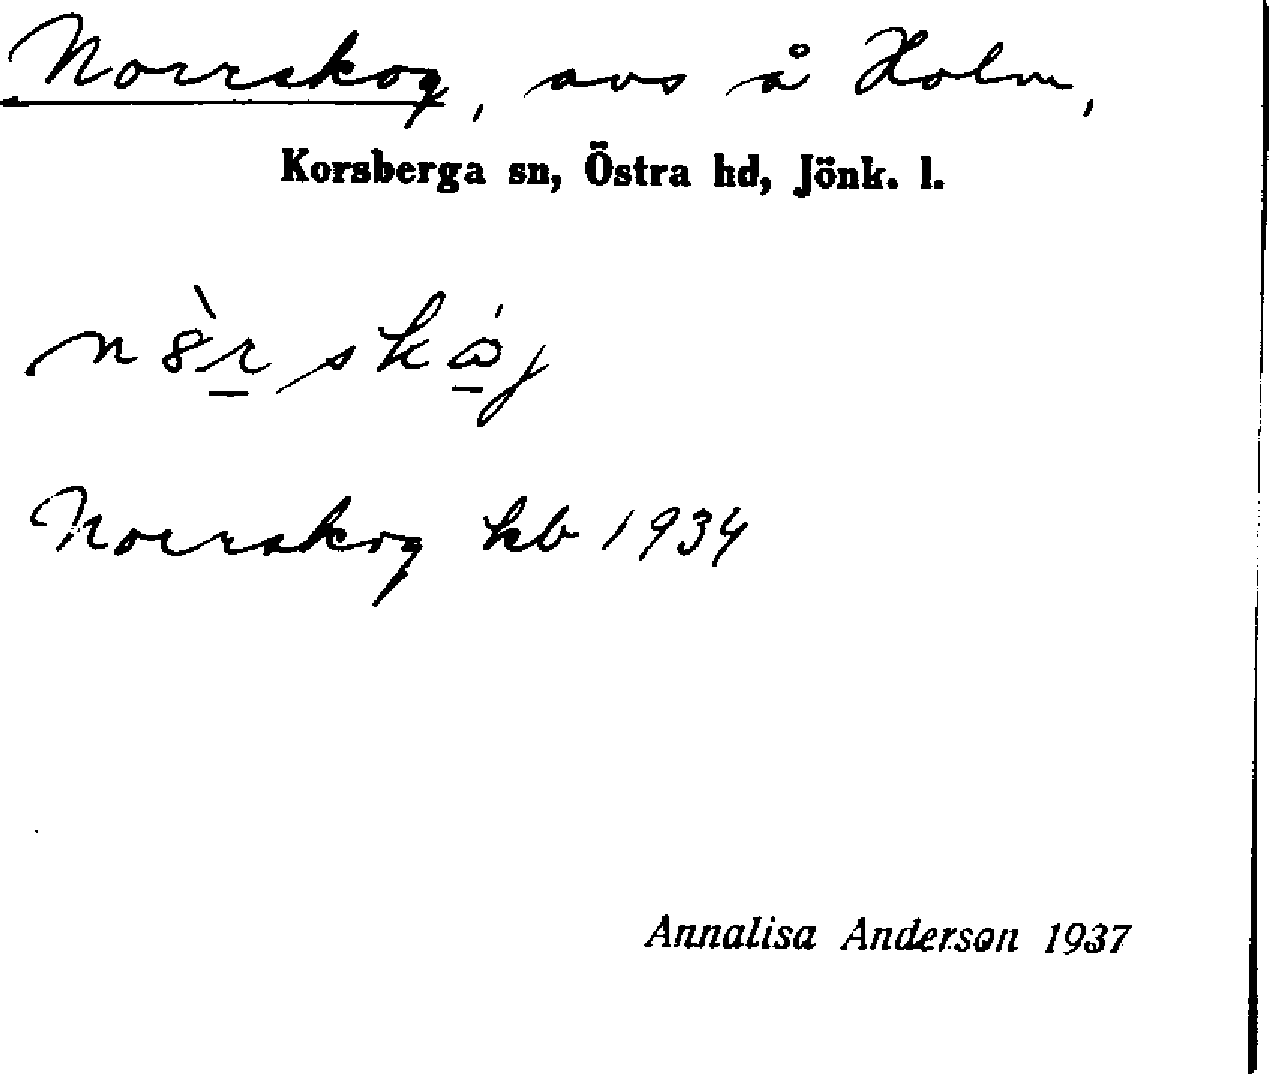 Norrskog, avs å Holm,
Korsberga sn, Östra hd, Jönk. l.
Norrskog kb 1934
Annalisa Anderson 1937